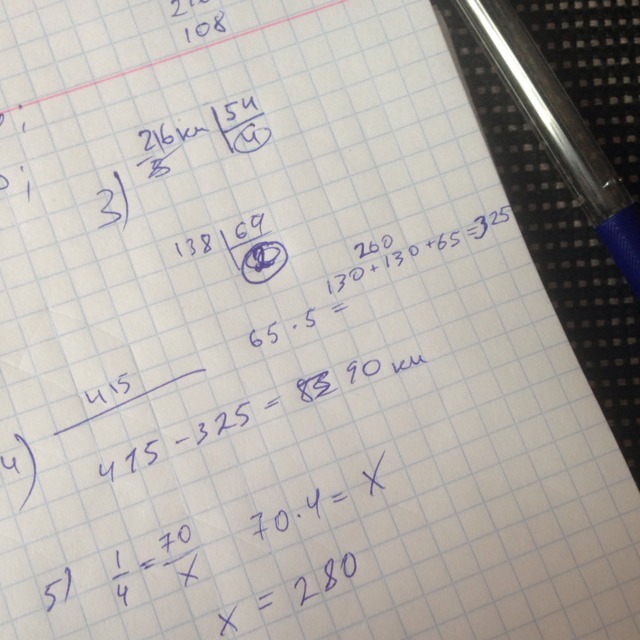 108
216 км 54
4
3)
138 69
2
260
130+130+65=325
65 · 5 =
415
4)
415 - 325 = 90 км
5) 1/4 = 70/x 70 · 4 = x
x = 280